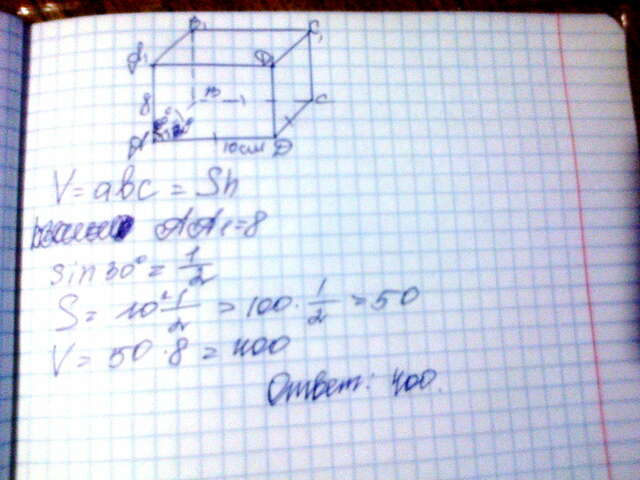 A₁
B₁
D₁
C₁
8
10
A
30°
10 см
D
C
V = abc = Sh
AA₁ = 8
sin 30° = 1/2
S = 10² · 1/2 = 100 · 1/2 = 50
V = 50 · 8 = 400
Ответ: 400.